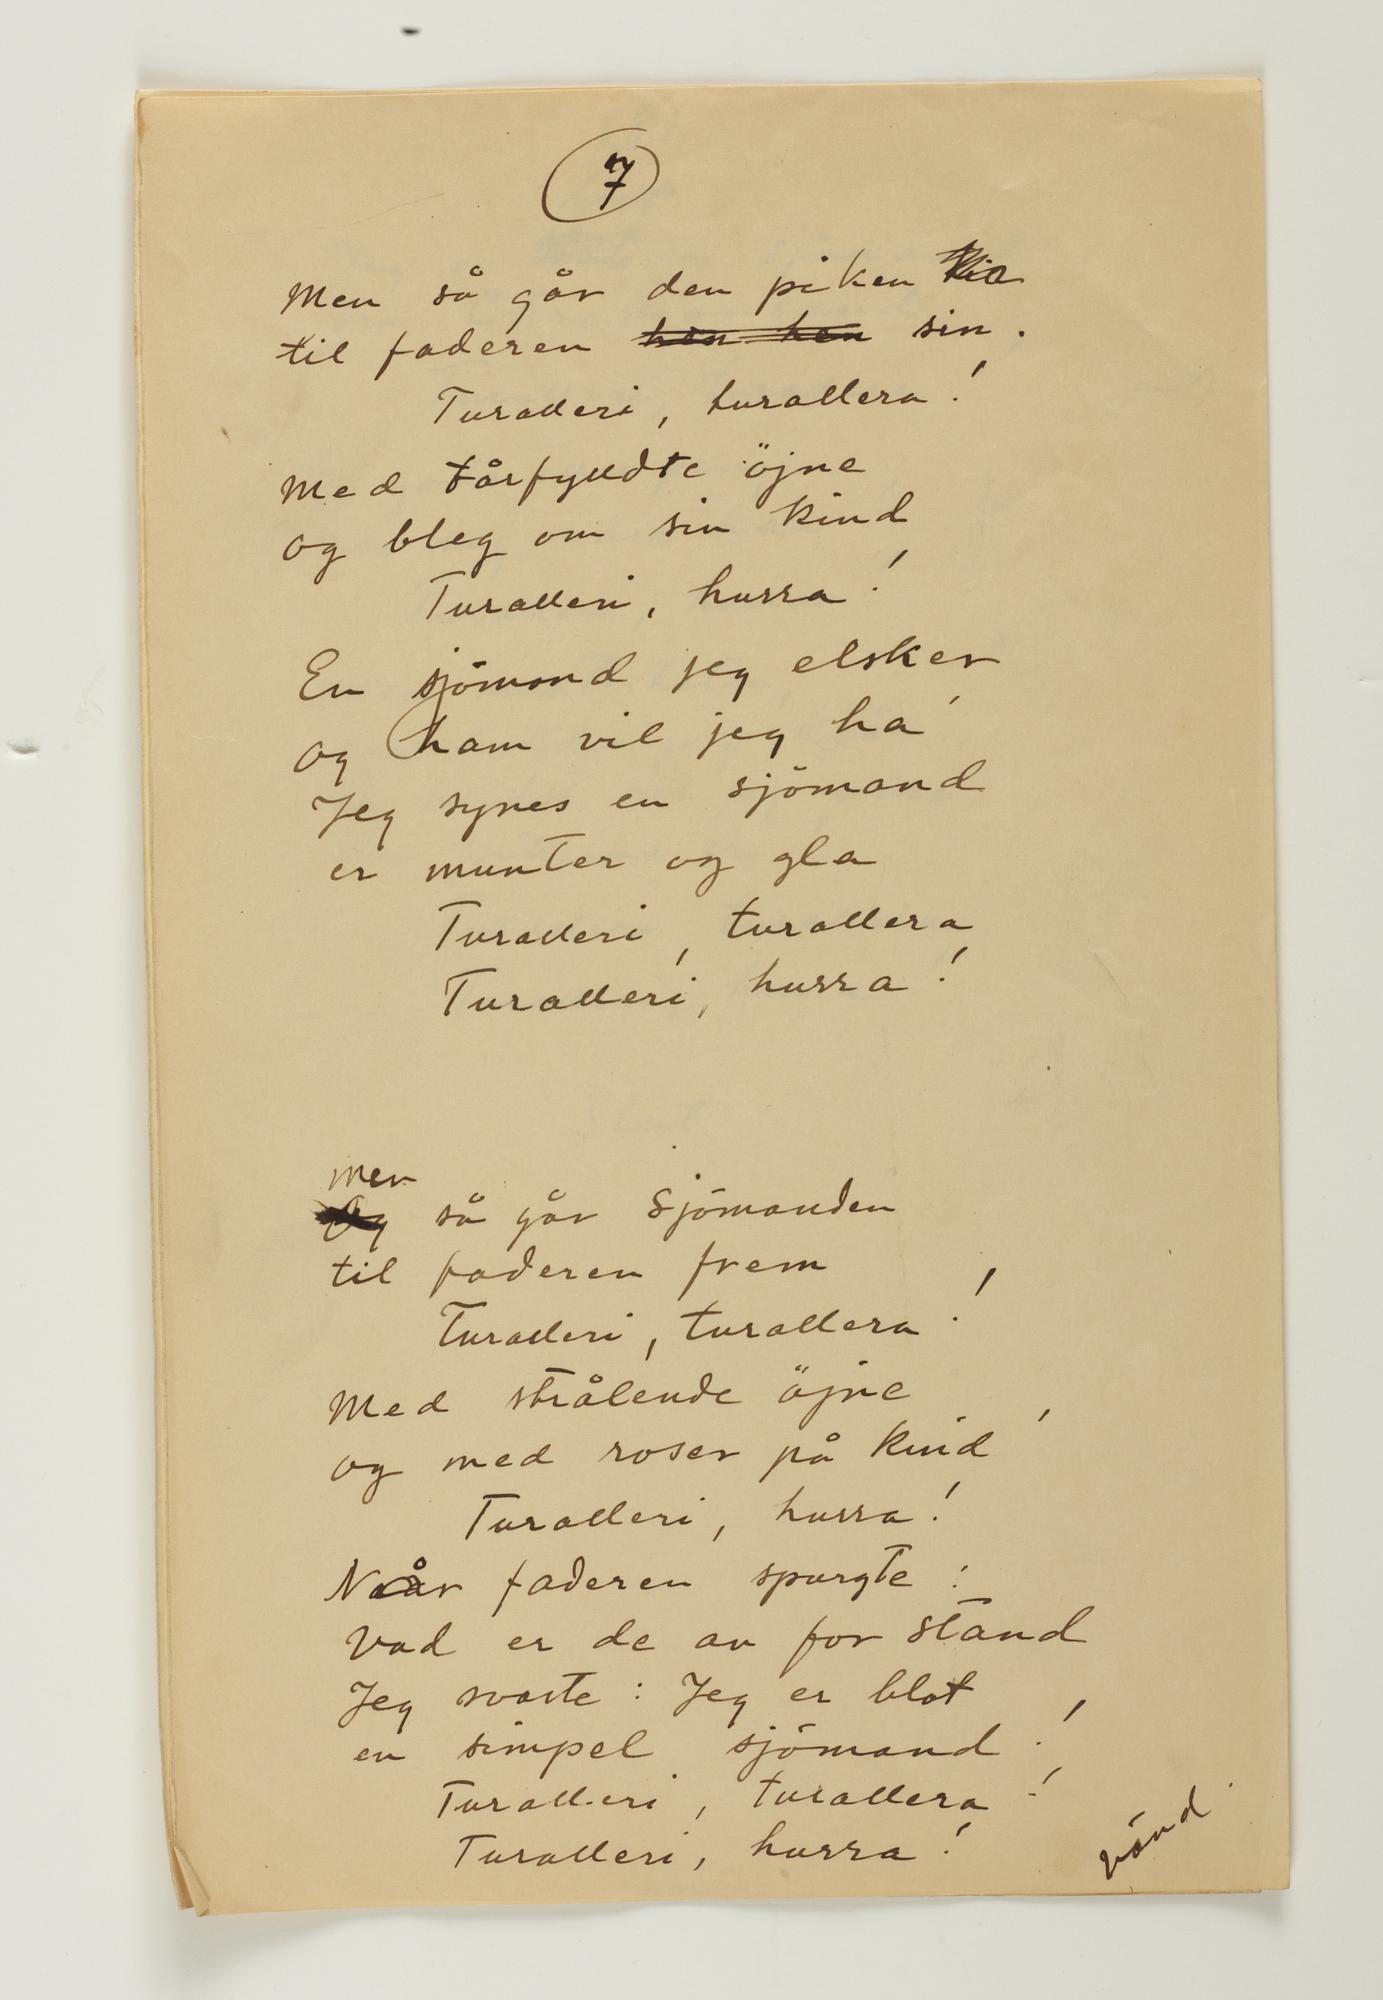 7
Men så går den piken
til faderen hen hen sin.
Turalleri, turallera!
Med tårfylldte öjne
og bleg om sin kind
Turalleri, hurra!
En sjömand jeg elsker
og ham vil jeg ha
Jeg synes en sjömand
er munter og gla
Turalleri, turallera
Turalleri, hurra!
Men
Og så går Sjömanden
til faderen frem
Turalleri, turallera!
Med strålende öjne
og med roser på kind
Turalleri, hurra!
Når faderen spurgte:
Vad er de av for stand
Jeg svarte: Jeg er blot
en simpel sjömand!
Turalleri, turallera!
Turalleri, hurra!
vänd.